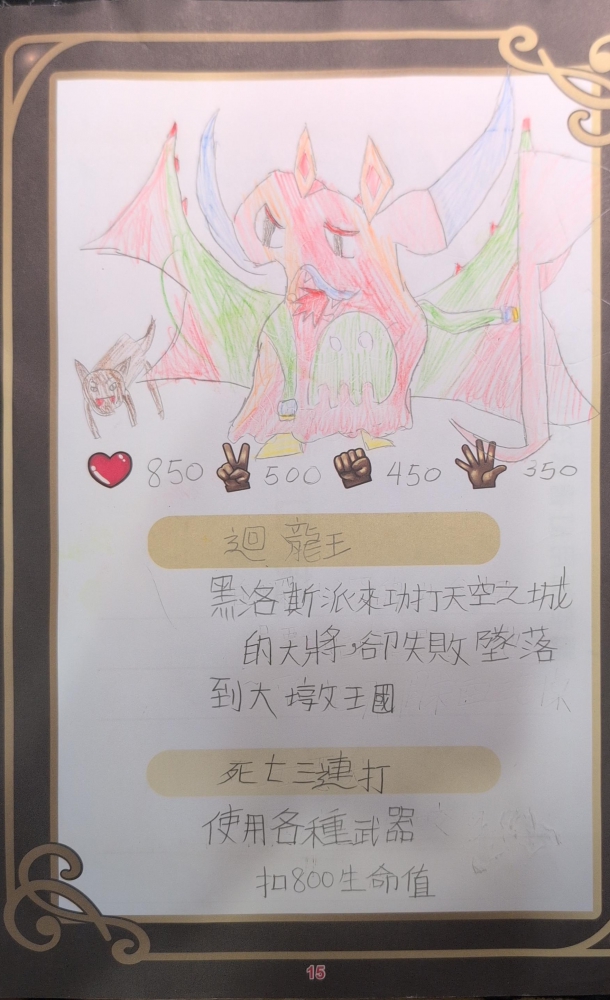 850 500 450 350
迴龍王
黑洛斯派來功打天空之城
的大將,卻失敗墜落
到大墩王國
死亡三連打
使用各種武器
扣800生命值
15